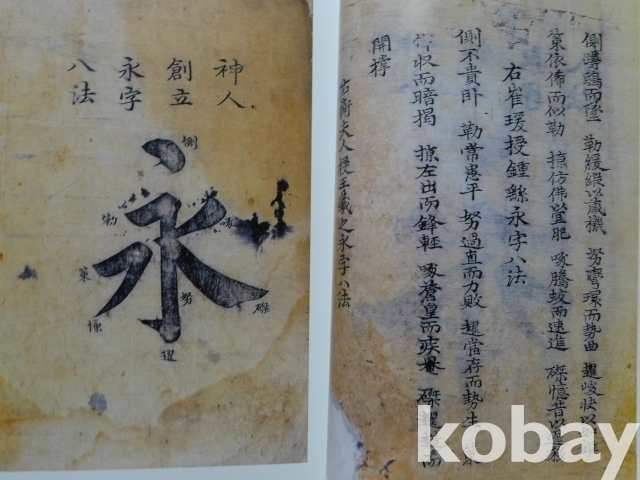 神人
創立
永字
八法
側
永
勒
努
策
啄
掠
磔
趯
側蹲鴟而墜 勒緩縱以藏機 努彎環而勢曲 趯峻状以
策依俙而似勒 掠仿佛以宜肥 啄騰蛟而速進 磔憶昔以
右崔瑗授鍾繇永字八法
側不貴卧 勒常患平 努過直而力敗 趯當存而勢生 策
仰收而暗揭 掠左出而鋒輕 啄蒼皇而疾罨 磔
開撐
右衛夫人授王羲之永字八法
kobay